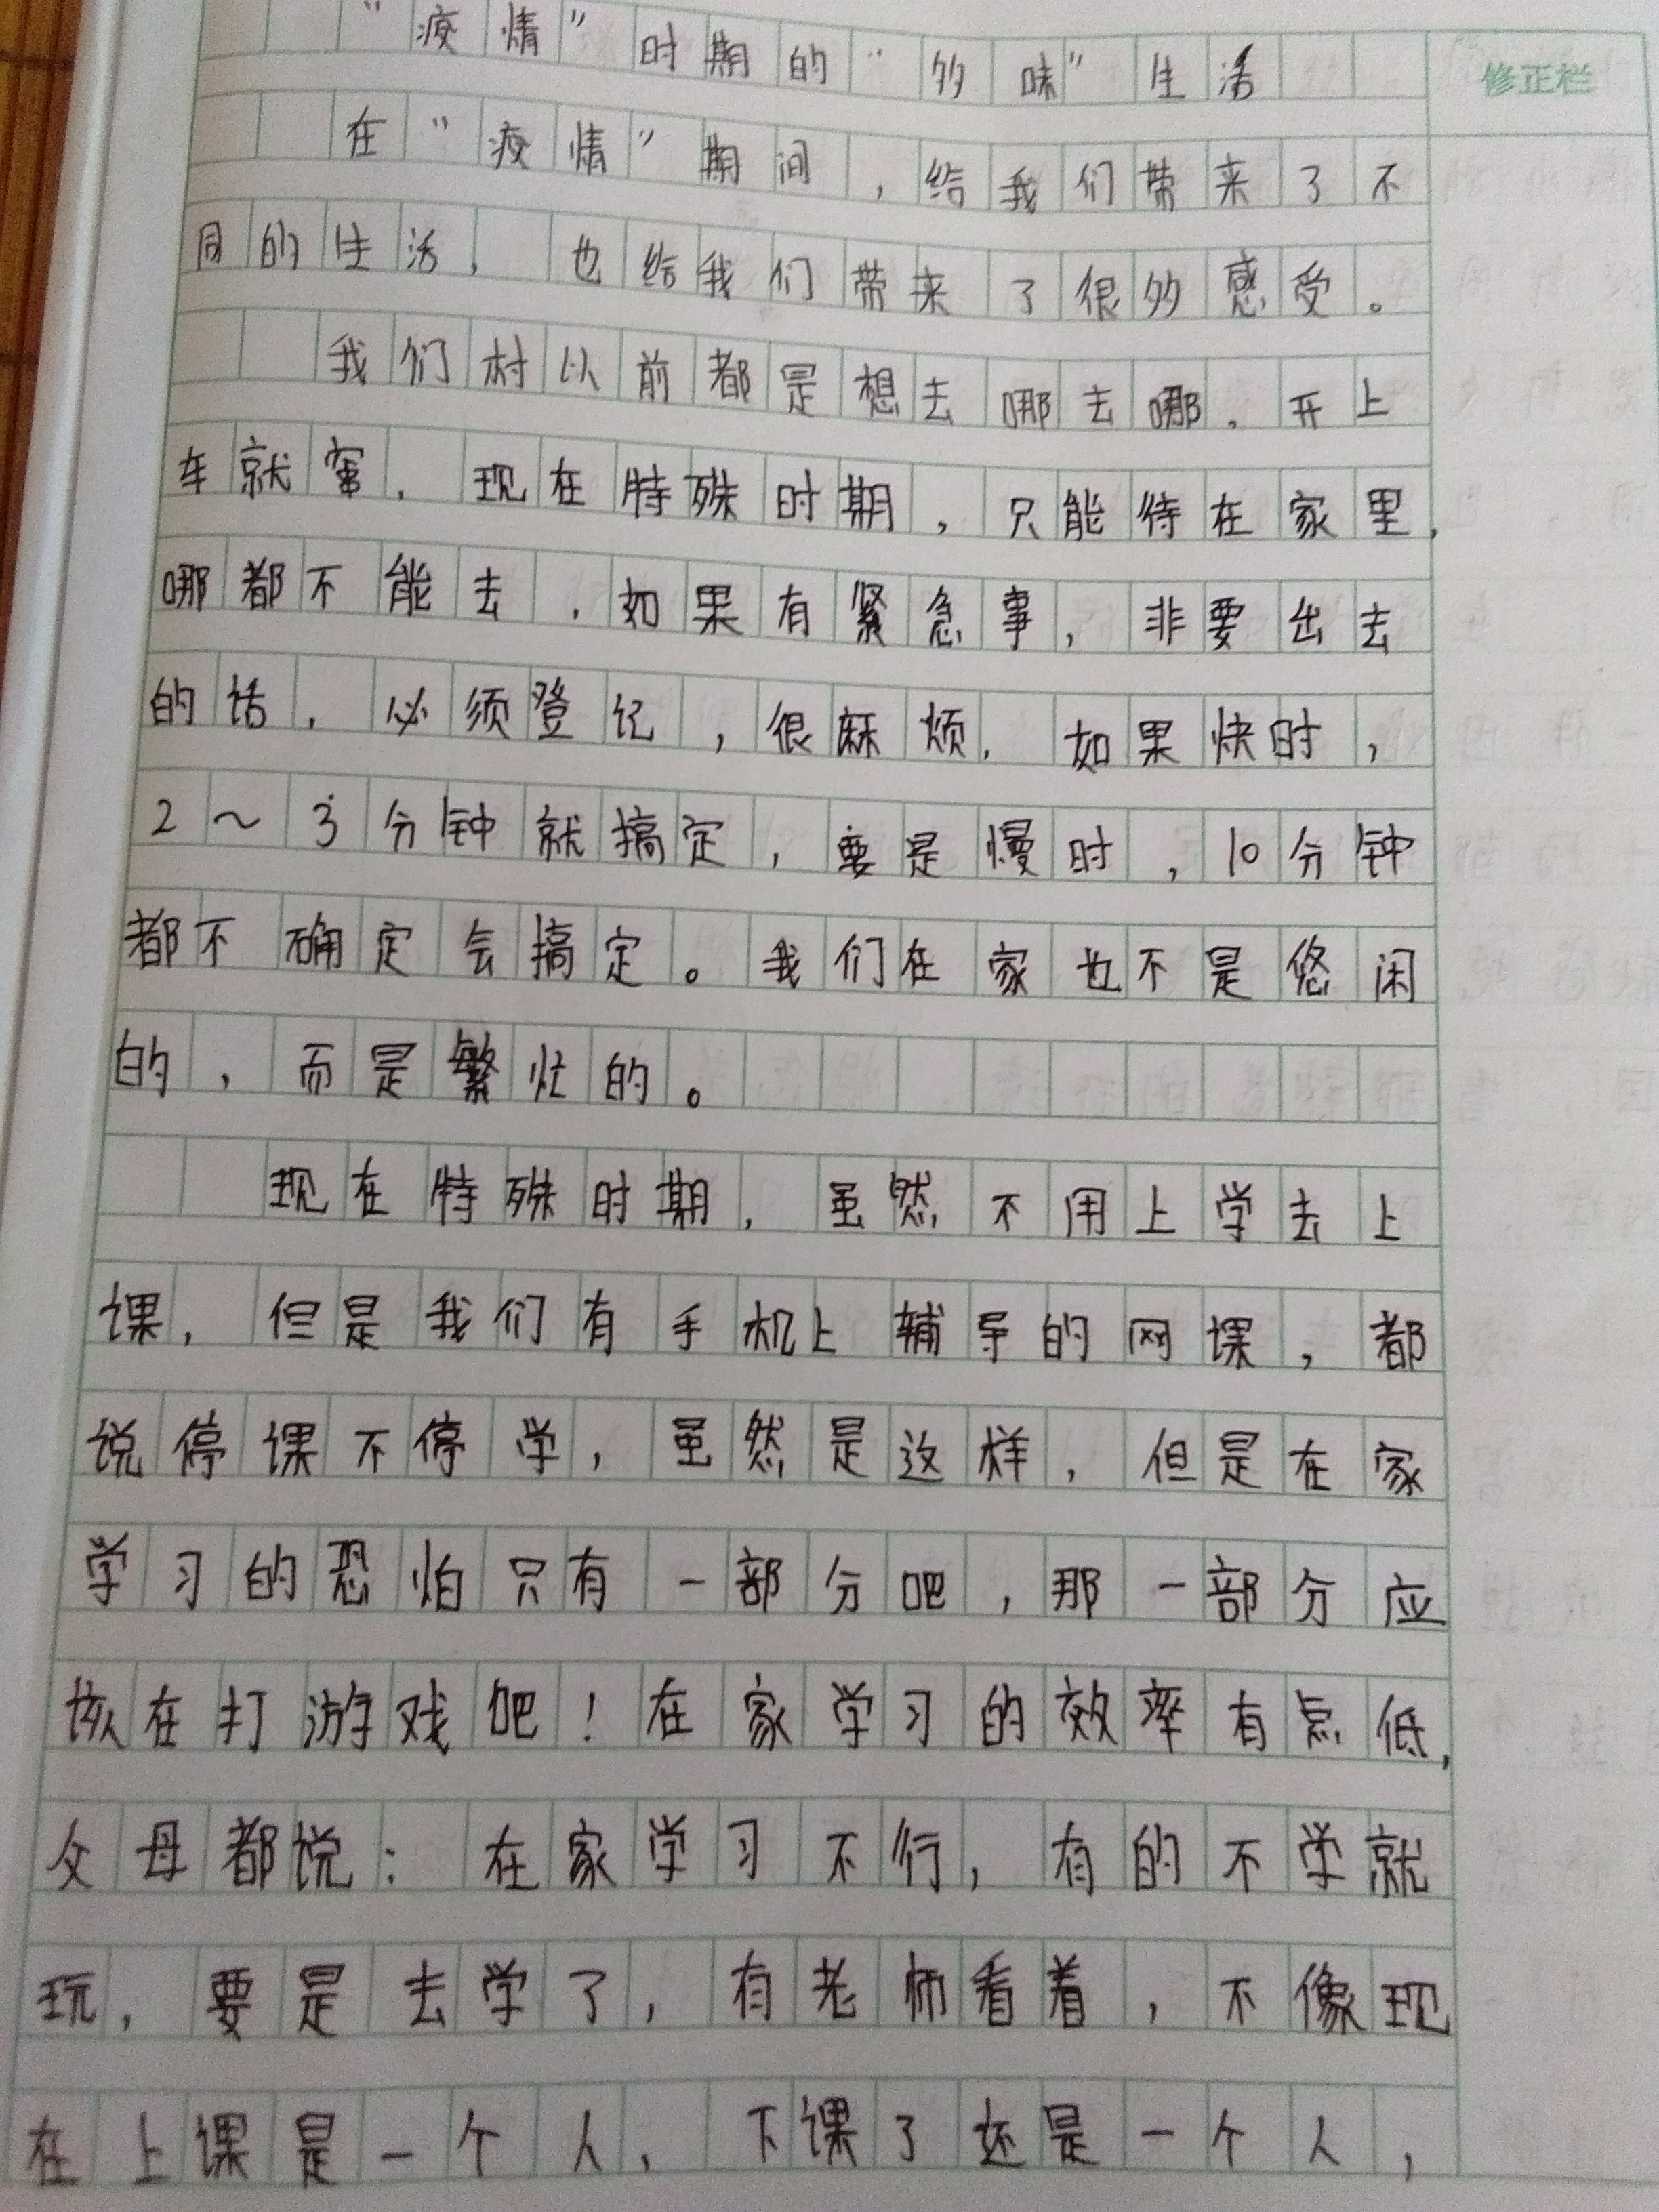 “疫情”时期的“多味”生活
修正栏
在“疫情”期间，给我们带来了不
同的生活，也给我们带来了很多感受。
我们村以前都是想去哪去哪，开上
车就窜，现在特殊时期，只能待在家里，
哪都不能去，如果有紧急事，非要出去
的话，必须登记，很麻烦，如果快时，
2～3分钟就搞定，要是慢时，10分钟
都不确定会搞定。我们在家也不是悠闲
的，而是繁忙的。
现在特殊时期，虽然不用上学去上
课，但是我们有手机上辅导的网课，都
说停课不停学，虽然是这样，但是在家
学习的恐怕只有一部分吧，那一部分应
该在打游戏吧！在家学习的效率有点低，
父母都说：在家学习不行，有的不学就
玩，要是去学了，有老师看着，不像现
在上课是一个人，下课了还是一个人，